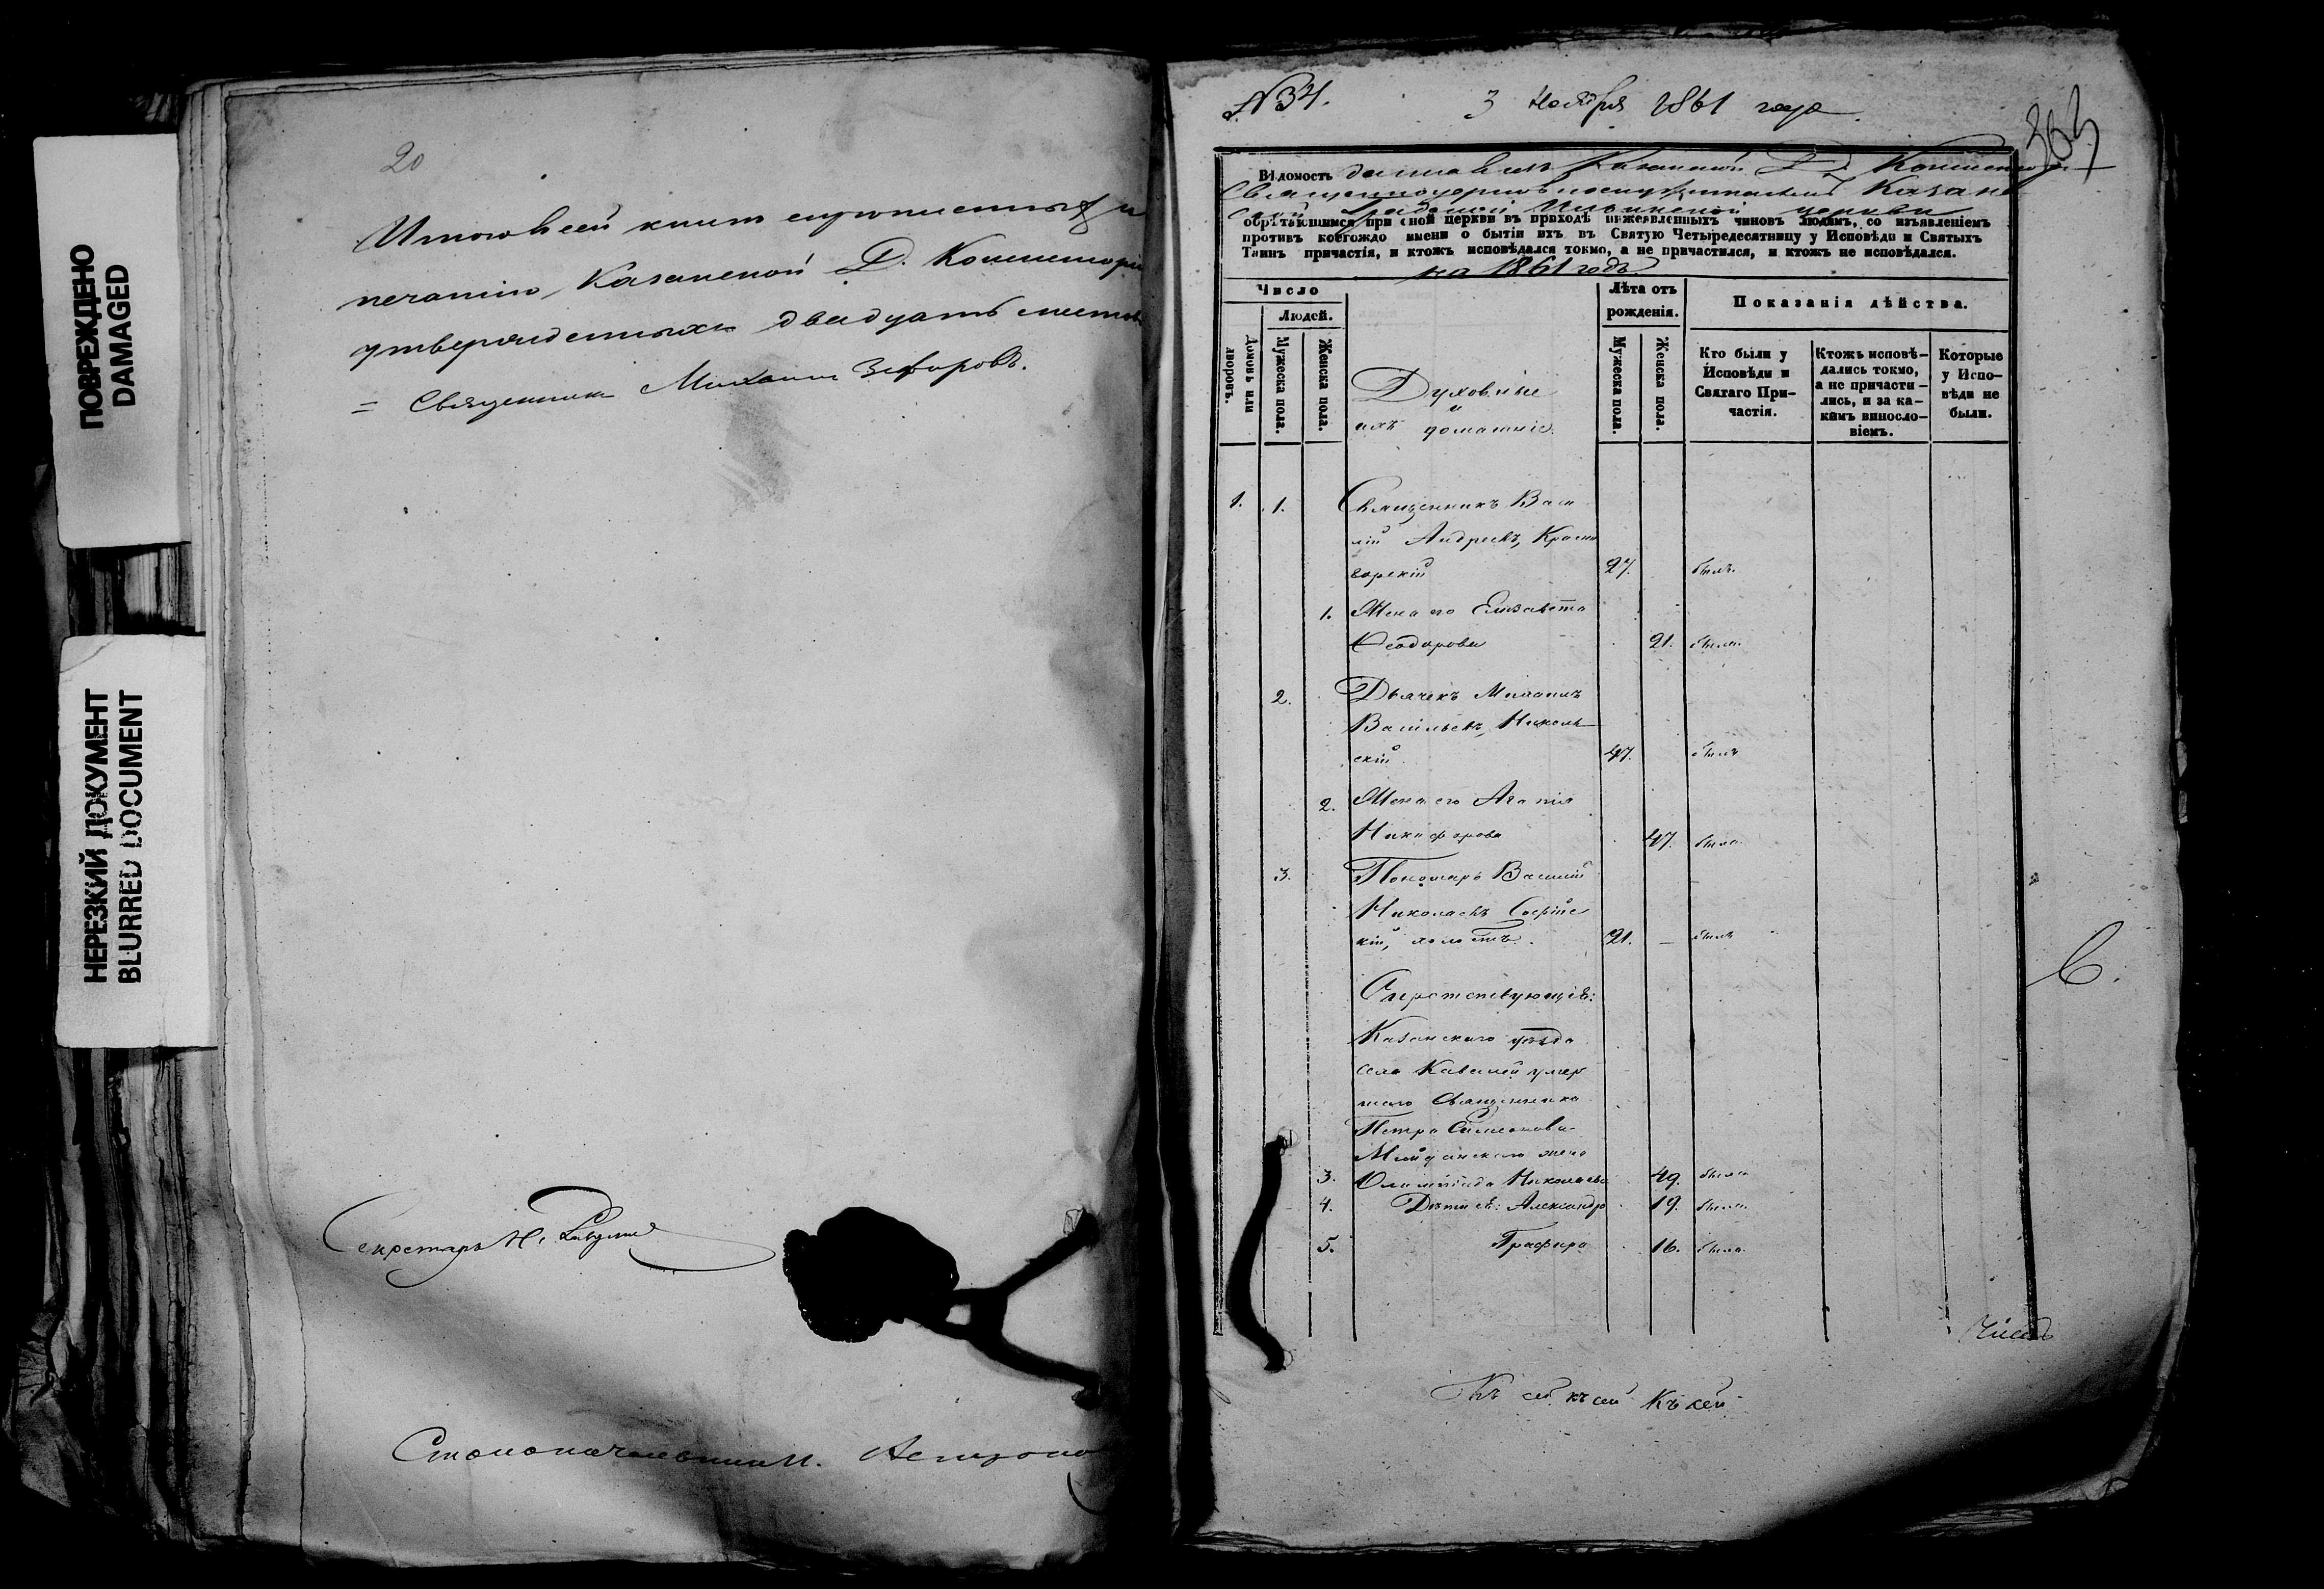 ПОВРЕЖДЕНО
DAMAGED
НЕРЕЗКИЙ ДОКУМЕНТ
BLURRED DOCUMENT
20
Итого в сей книге и
печатию Казанской Д. Консисторіи
утвержденныхъ двадцать листовъ
= Священникъ Михаилъ Зефировъ.
Секретарь Н.
Столоначальникъ
№34.
3 Ноября 1861 года
303
Вѣдомость данная изъ Казанской Д. Консисторіи
Священноцерковнослужителямъ Казан
ской Градской Ильинской церкви
обрѣтающимся при сной церкви въ приходѣ нижеявленныхъ чиновъ людямъ, со изъявленіемъ
противъ коегождо имени о бытіи ихъ въ Святую Четыредесятницу у Исповѣди и Святыхъ
Таинъ причастія, и ктожъ исповѣдался токмо, а не причастился, и ктожъ не исповѣдался.
на 1861 годъ
Число
Людей.
Домовъ или дворовъ.
Мужеска пола.
Женска пола.
Духовные
и
ихъ домашніе.
Лѣта отъ
рожденія.
Мужеска пола.
Женска пола.
Показанія дѣйства.
Кто были у
Исповѣди и
Святаго При-
частія.
Ктожъ исповѣ-
дались токмо,
а не причасти-
лись, и за ка-
кимъ винносло-
віемъ.
Которые
у Испо-
вѣди не
были.
1. 1. Священникъ Васи
лій Андреевъ, Красно
горскій 27. былъ.
1. Жена его Елизавета
Ѳеодорова 21. была.
2. Дьячекъ Михаилъ
Васильевъ, Николь
скій 47. былъ
2. Жена его Агапія
Никифорова 47. была.
3. Пономарь Василій
Николаевъ Софійс
кій, холостъ. 21. – былъ
Сиротствующіе:
Казанскаго уѣзда
села Кавалей умер
шаго Священника
Петра Симеонова
Майданскаго жена
3. Олимпіада Николаева 49. была
4. Дѣти ея: Александра 19. была.
5. Глафира 16. была.
Къ сей къ сей Къ сей